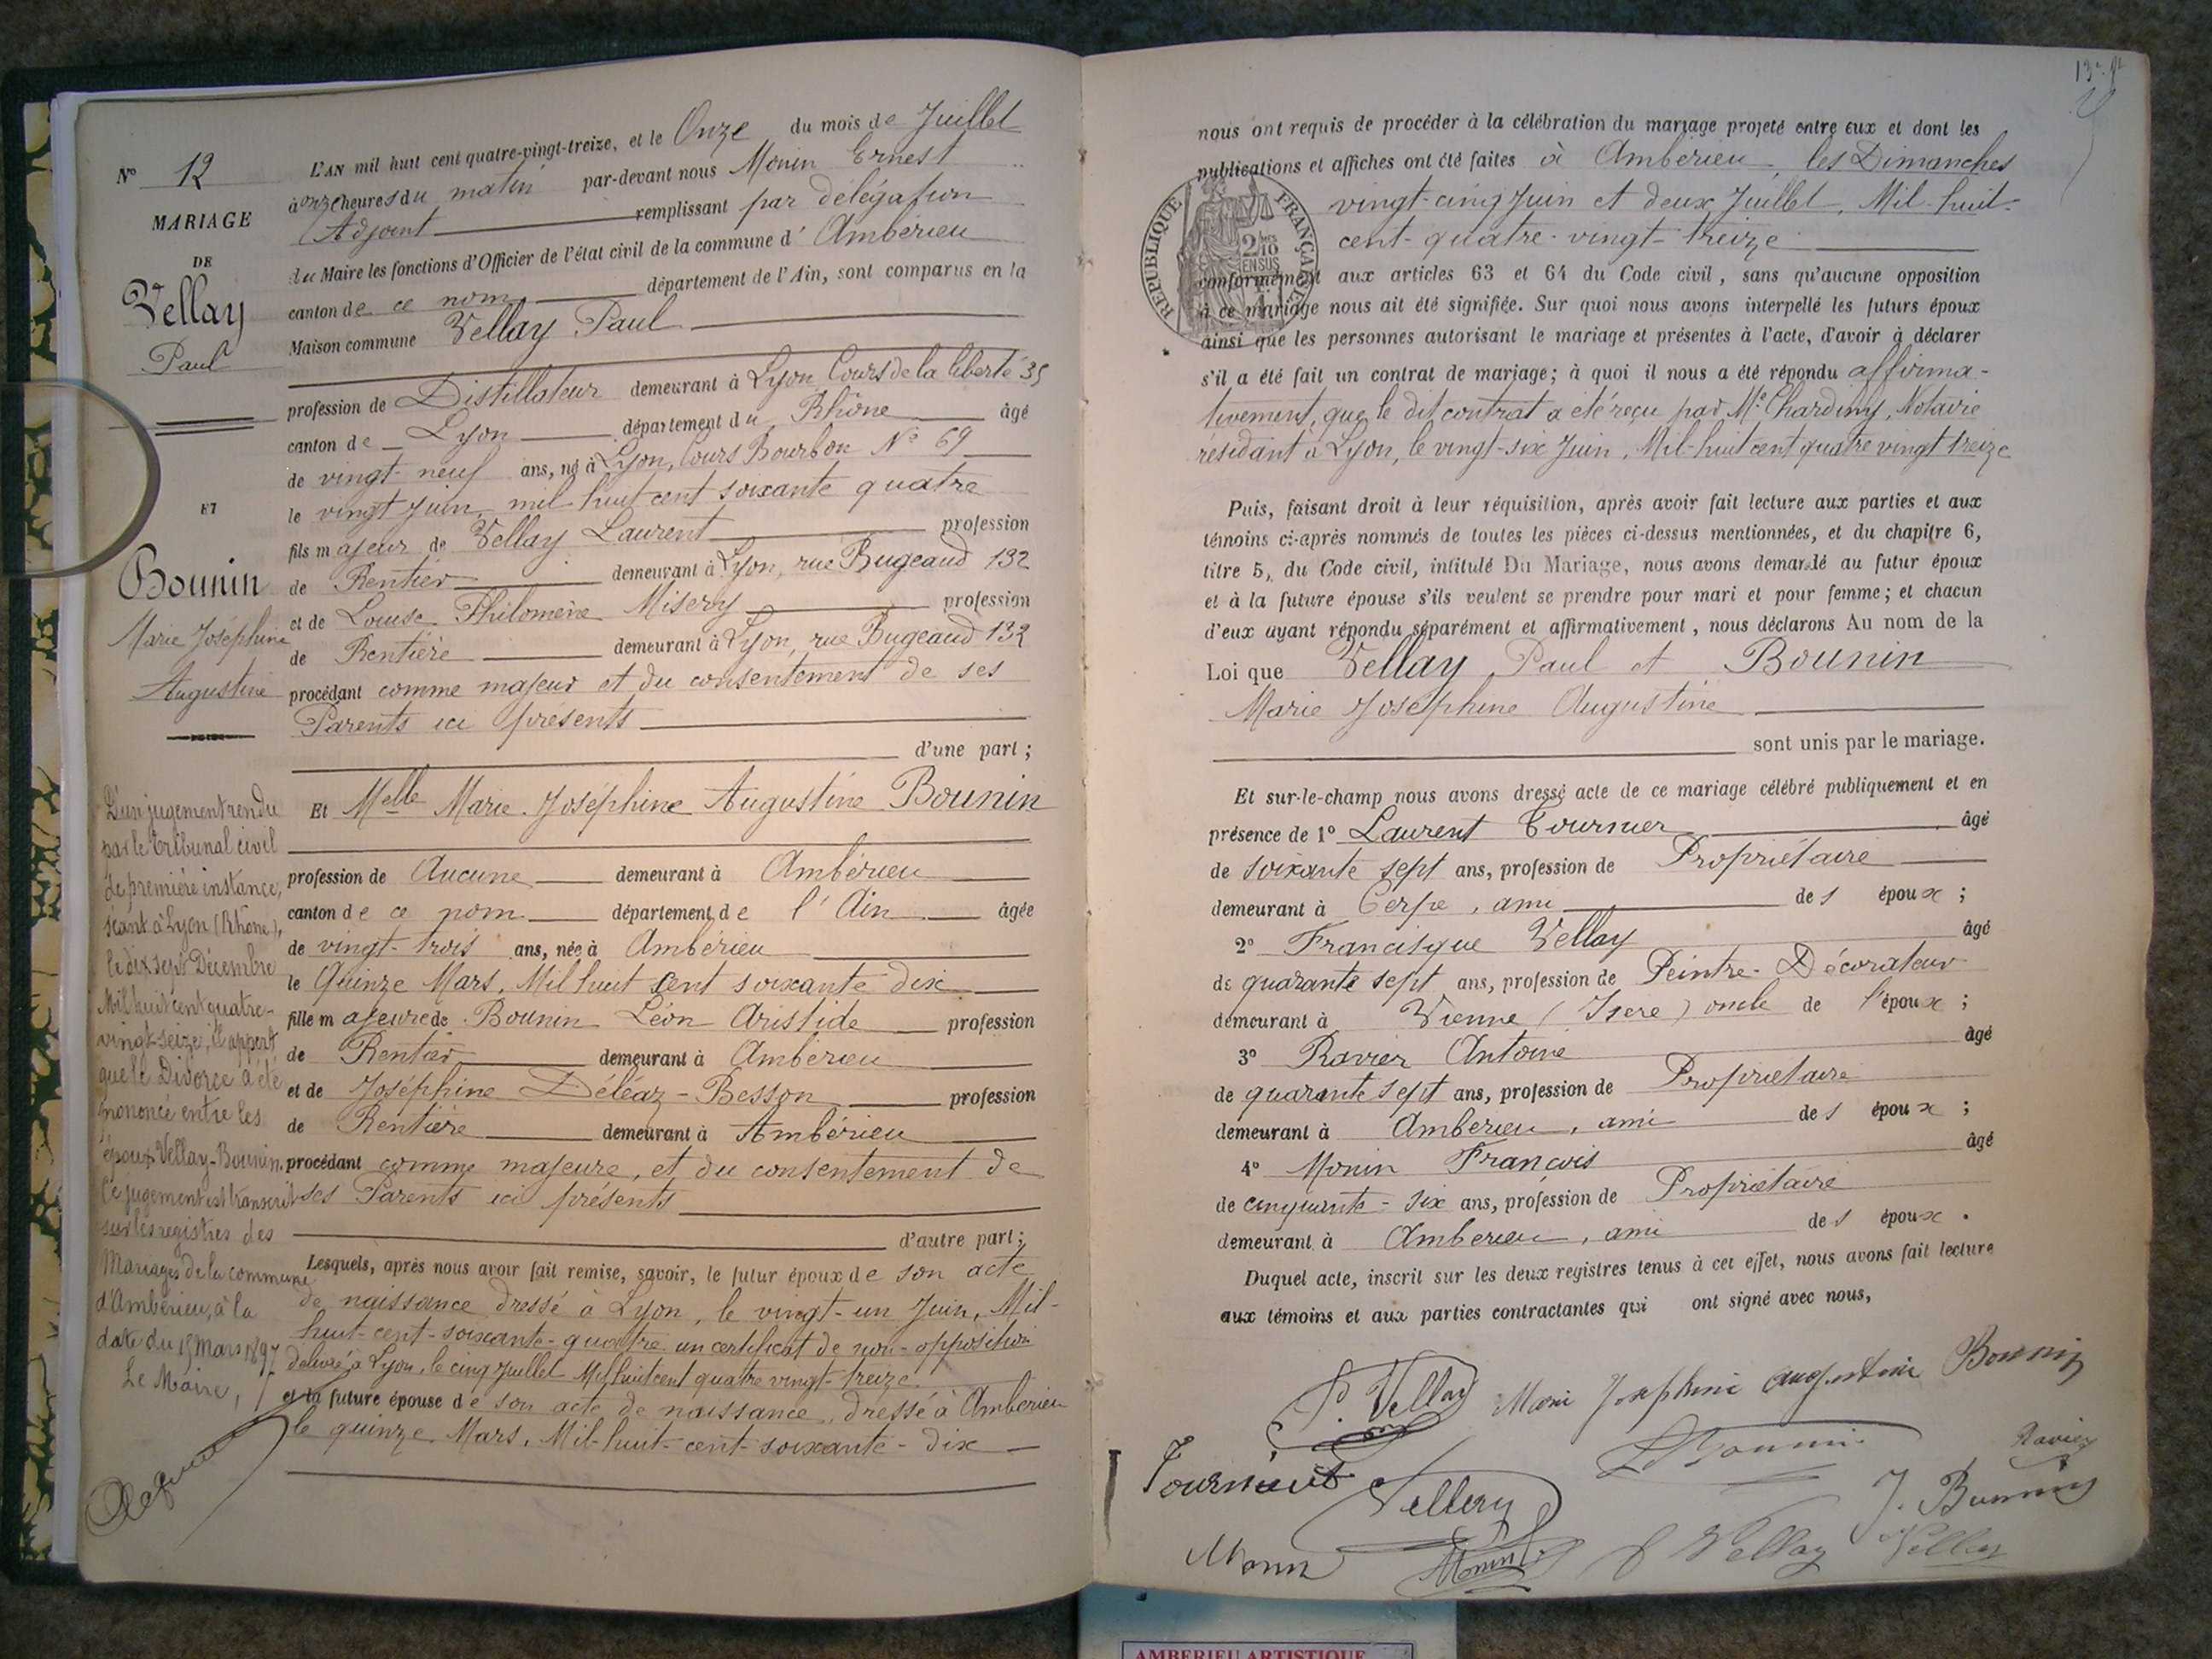 N° 12
MARIAGE
DE
Vellay
Paul
ET
Bounin
Marie Joséphine
Augustine
D'un jugement rendu
par le Tribunal civil
de première instance,
séant à Lyon (Rhône),
le dix sept Décembre
Mil huit cent quatre-
vingt-seize, il appert
que le Divorce a été
prononcé entre les
époux Vellay-Bounin.
Ce jugement est transcrit
sur les registres des
Mariages de la commune
d'Ambérieu, à la
date du 15 Mars 1897
Le Maire,
L'AN mil huit cent quatre-vingt-treize, et le Onze du mois de Juillet
à onze heures du matin par-devant nous Monin Ernest
Adjoint remplissant par délégation
du Maire les fonctions d'Officier de l'état civil de la commune d' Ambérieu
canton de ce nom département de l'Ain, sont comparus en la
Maison commune Vellay Paul
profession de Distillateur demeurant à Lyon, Cours de la liberté 35
canton de Lyon département du Rhône âgé
de vingt-neuf ans, né à Lyon, Cours Bourbon N° 69
le vingt juin, mil huit cent soixante quatre
fils majeur de Vellay Laurent profession
de Rentier demeurant à Lyon, rue Bugeaud 132
et de Louise Philomène Misery profession
de Rentière demeurant à Lyon, rue Bugeaud 132
procédant comme majeur et du consentement de ses
Parents ici présents
d'une part ;
Et Melle Marie Joséphine Augustine Bounin
profession de Aucune demeurant à Ambérieu
canton de ce nom département de l'Ain âgée
de vingt-trois ans, née à Ambérieu
le Quinze Mars, Mil huit cent soixante dix
fille majeure de Bounin Léon Aristide profession
de Rentier demeurant à Ambérieu
et de Joséphine Déléaz-Besson profession
de Rentière demeurant à Ambérieu
procédant comme majeure, et du consentement de
ses Parents ici présents
d'autre part ;
Lesquels, après nous avoir fait remise, savoir, le futur époux de son acte
de naissance dressé à Lyon, le vingt-un Juin, Mil-
huit-cent-soixante-quatre un certificat de non-opposition
délivré à Lyon, le cinq Juillet Mil huit cent quatre vingt-treize.
et la future épouse de son acte de naissance, dressé à Ambérieu
le quinze Mars, Mil-huit-cent-soixante-dix
nous ont requis de procéder à la célébration du mariage projeté entre eux et dont les
publications et affiches ont été faites à Ambérieu, les Dimanches
vingt-cinq Juin et deux Juillet, Mil-huit-
cent-quatre-vingt-treize
RÉPUBLIQUE FRANÇAISE
conformément aux articles 63 et 64 du Code civil, sans qu'aucune opposition
à ce mariage nous ait été signifiée. Sur quoi nous avons interpellé les futurs époux
ainsi que les personnes autorisant le mariage et présentes à l'acte, d'avoir à déclarer
s'il a été fait un contrat de mariage ; à quoi il nous a été répondu affirma-
tivement, que le dit contrat a été reçu par Me Chardiny, Notaire
résidant à Lyon, le vingt-six Juin, Mil-huit cent quatre vingt treize
Puis, faisant droit à leur réquisition, après avoir fait lecture aux parties et aux
témoins ci-après nommés de toutes les pièces ci-dessus mentionnées, et du chapitre 6,
titre 5, du Code civil, intitulé Du Mariage, nous avons demandé au futur époux
et à la future épouse s'ils veulent se prendre pour mari et pour femme ; et chacun
d'eux ayant répondu séparément et affirmativement, nous déclarons Au nom de la
Loi que Vellay Paul et Bounin
Marie Joséphine Augustine
sont unis par le mariage.
Et sur-le-champ nous avons dressé acte de ce mariage célébré publiquement et en
présence de 1° Laurent Tournier âgé
de soixante sept ans, profession de Propriétaire
demeurant à Cerpe, ami des époux ;
2° Francisque Vellay âgé
de quarante sept ans, profession de Peintre-Décorateur
demeurant à Vienne (Isère) oncle de l'époux ;
3° Ravier Antoine âgé
de quarante sept ans, profession de Propriétaire
demeurant à Ambérieu, ami des époux ;
4° Monin François âgé
de cinquante-six ans, profession de Propriétaire
demeurant à Ambérieu, ami des époux.
Duquel acte, inscrit sur les deux registres tenus à cet effet, nous avons fait lecture
aux témoins et aux parties contractantes qui ont signé avec nous,
P. Vellay Marie Joséphine Augustine Bounin
Ravier
J. Bounin
Vellay
Monin Monin Vellay Vellay
AMBERIEU ARTISTIQUE